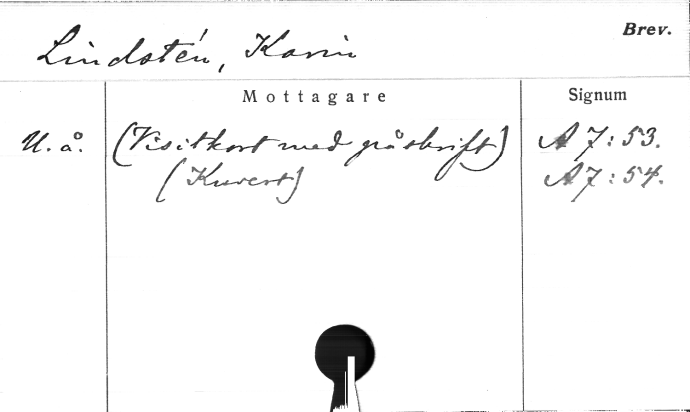 Brev.
Lindstén, Karin
Mottagare
Signum
U. å. (Visitkort med påskrift) A 7:53.
(Kuvert) A 7:54.